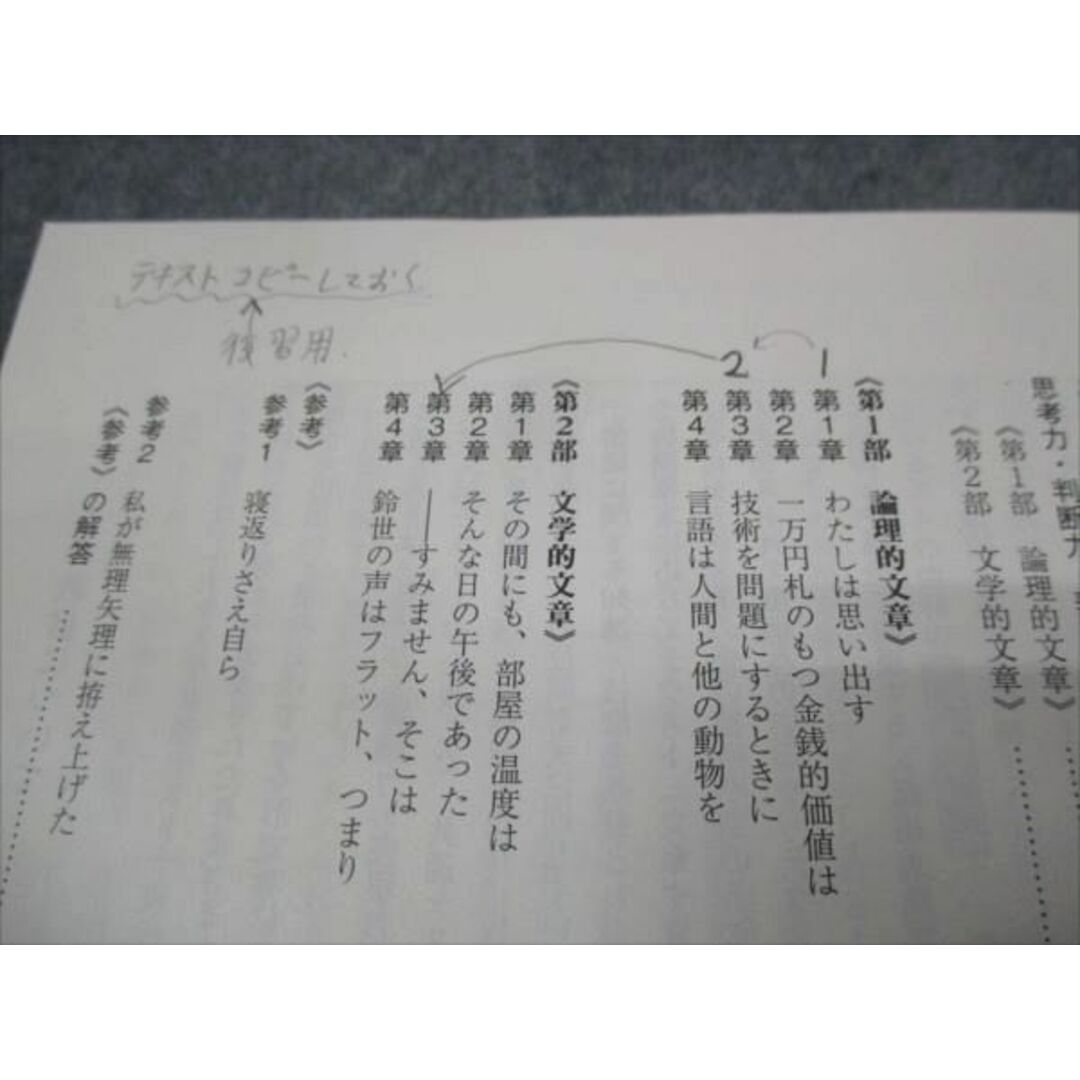 思考力・判断力
《第1部 論理的文章》
《第2部 文学的文章》
《第1部 論理的文章》
1
第1章 わたしは思い出す
第2章 一万円札のもつ金銭的価値は
2
第3章 技術を問題にするときに
第4章 言語は人間と他の動物を
《第2部 文学的文章》
第1章 その間にも、部屋の温度は
第2章 そんな日の午後であった
第3章 ――すみません、そこは
第4章 鈴世の声はフラット、つまり
《参考》
参考1 寝返りさえ自ら
参考2 私が無理矢理に拵え上げた
《参考》の解答
テキストコピーしておく
復習用.